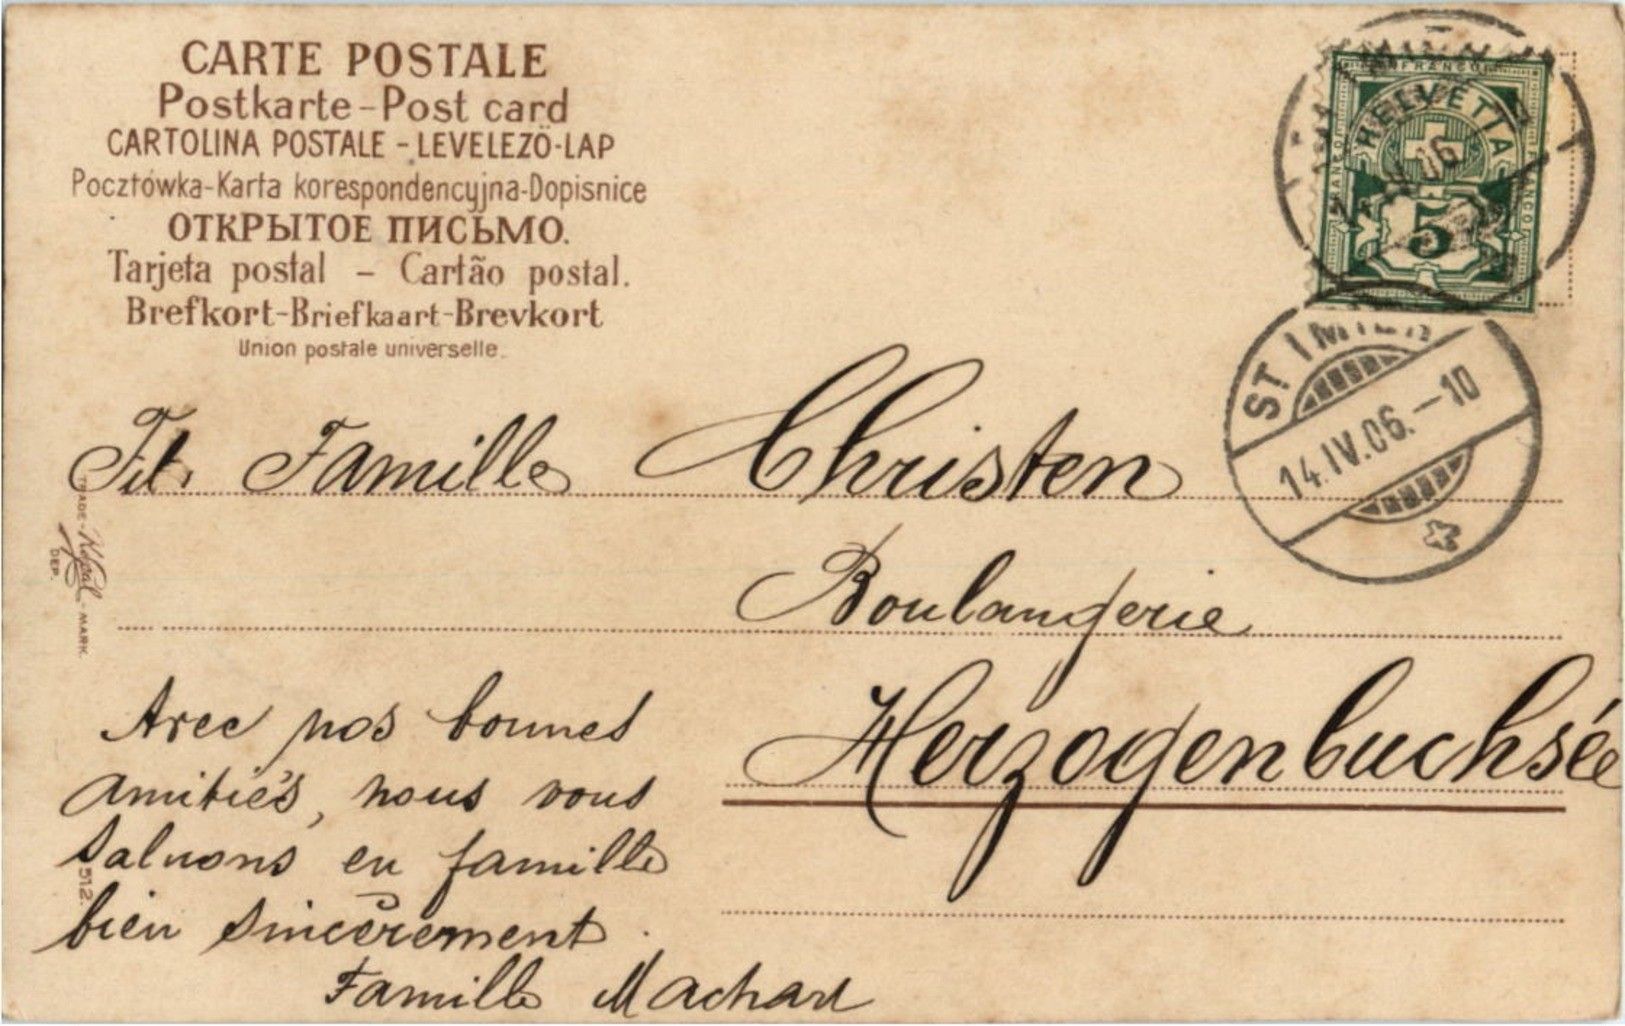 CARTE POSTALE
Postkarte-Post card
CARTOLINA POSTALE - LEVELEZÖ-LAP
Pocztówka-Karta korespondencyjna-Dopisnice
ОТКРЫТОЕ ПИСЬМО.
Tarjeta postal - Cartão postal.
Brefkort-Briefkaart-Brevkort
Union postale universelle.
FRANCO
HELVETIA
FRANCO
5
06
ST IMIER
14.IV.06.-10
Tit. Famille Christen
Boulangerie
Herzogenbuchsée
TRADE-MARK.
DEP.
512.
Avec nos bonnes
amitiés, nous vous
saluons en famille
bien sincèrement.
Famille Machard